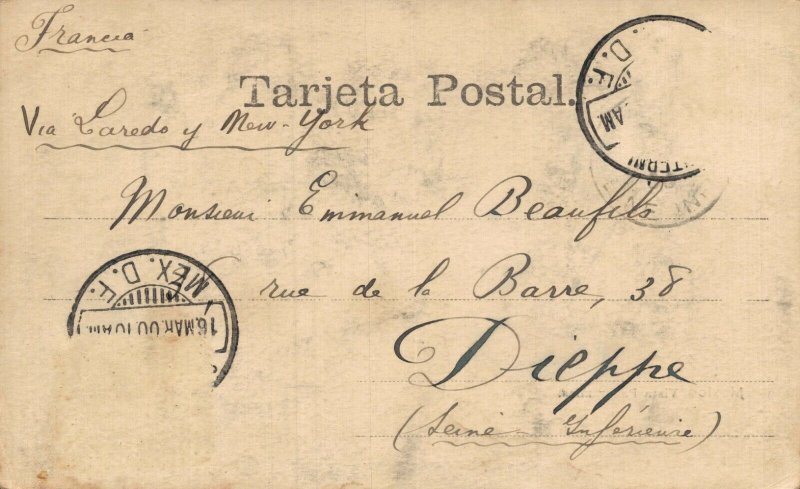 Francia
Tarjeta Postal.
Via Laredo y New-York
D. F.
AM
Monsieur Emmanuel Beaufils
MEX. D. F.
16.MAR.00.10AM
rue de la Barre, 38
Dieppe
(Seine-Inférieure)